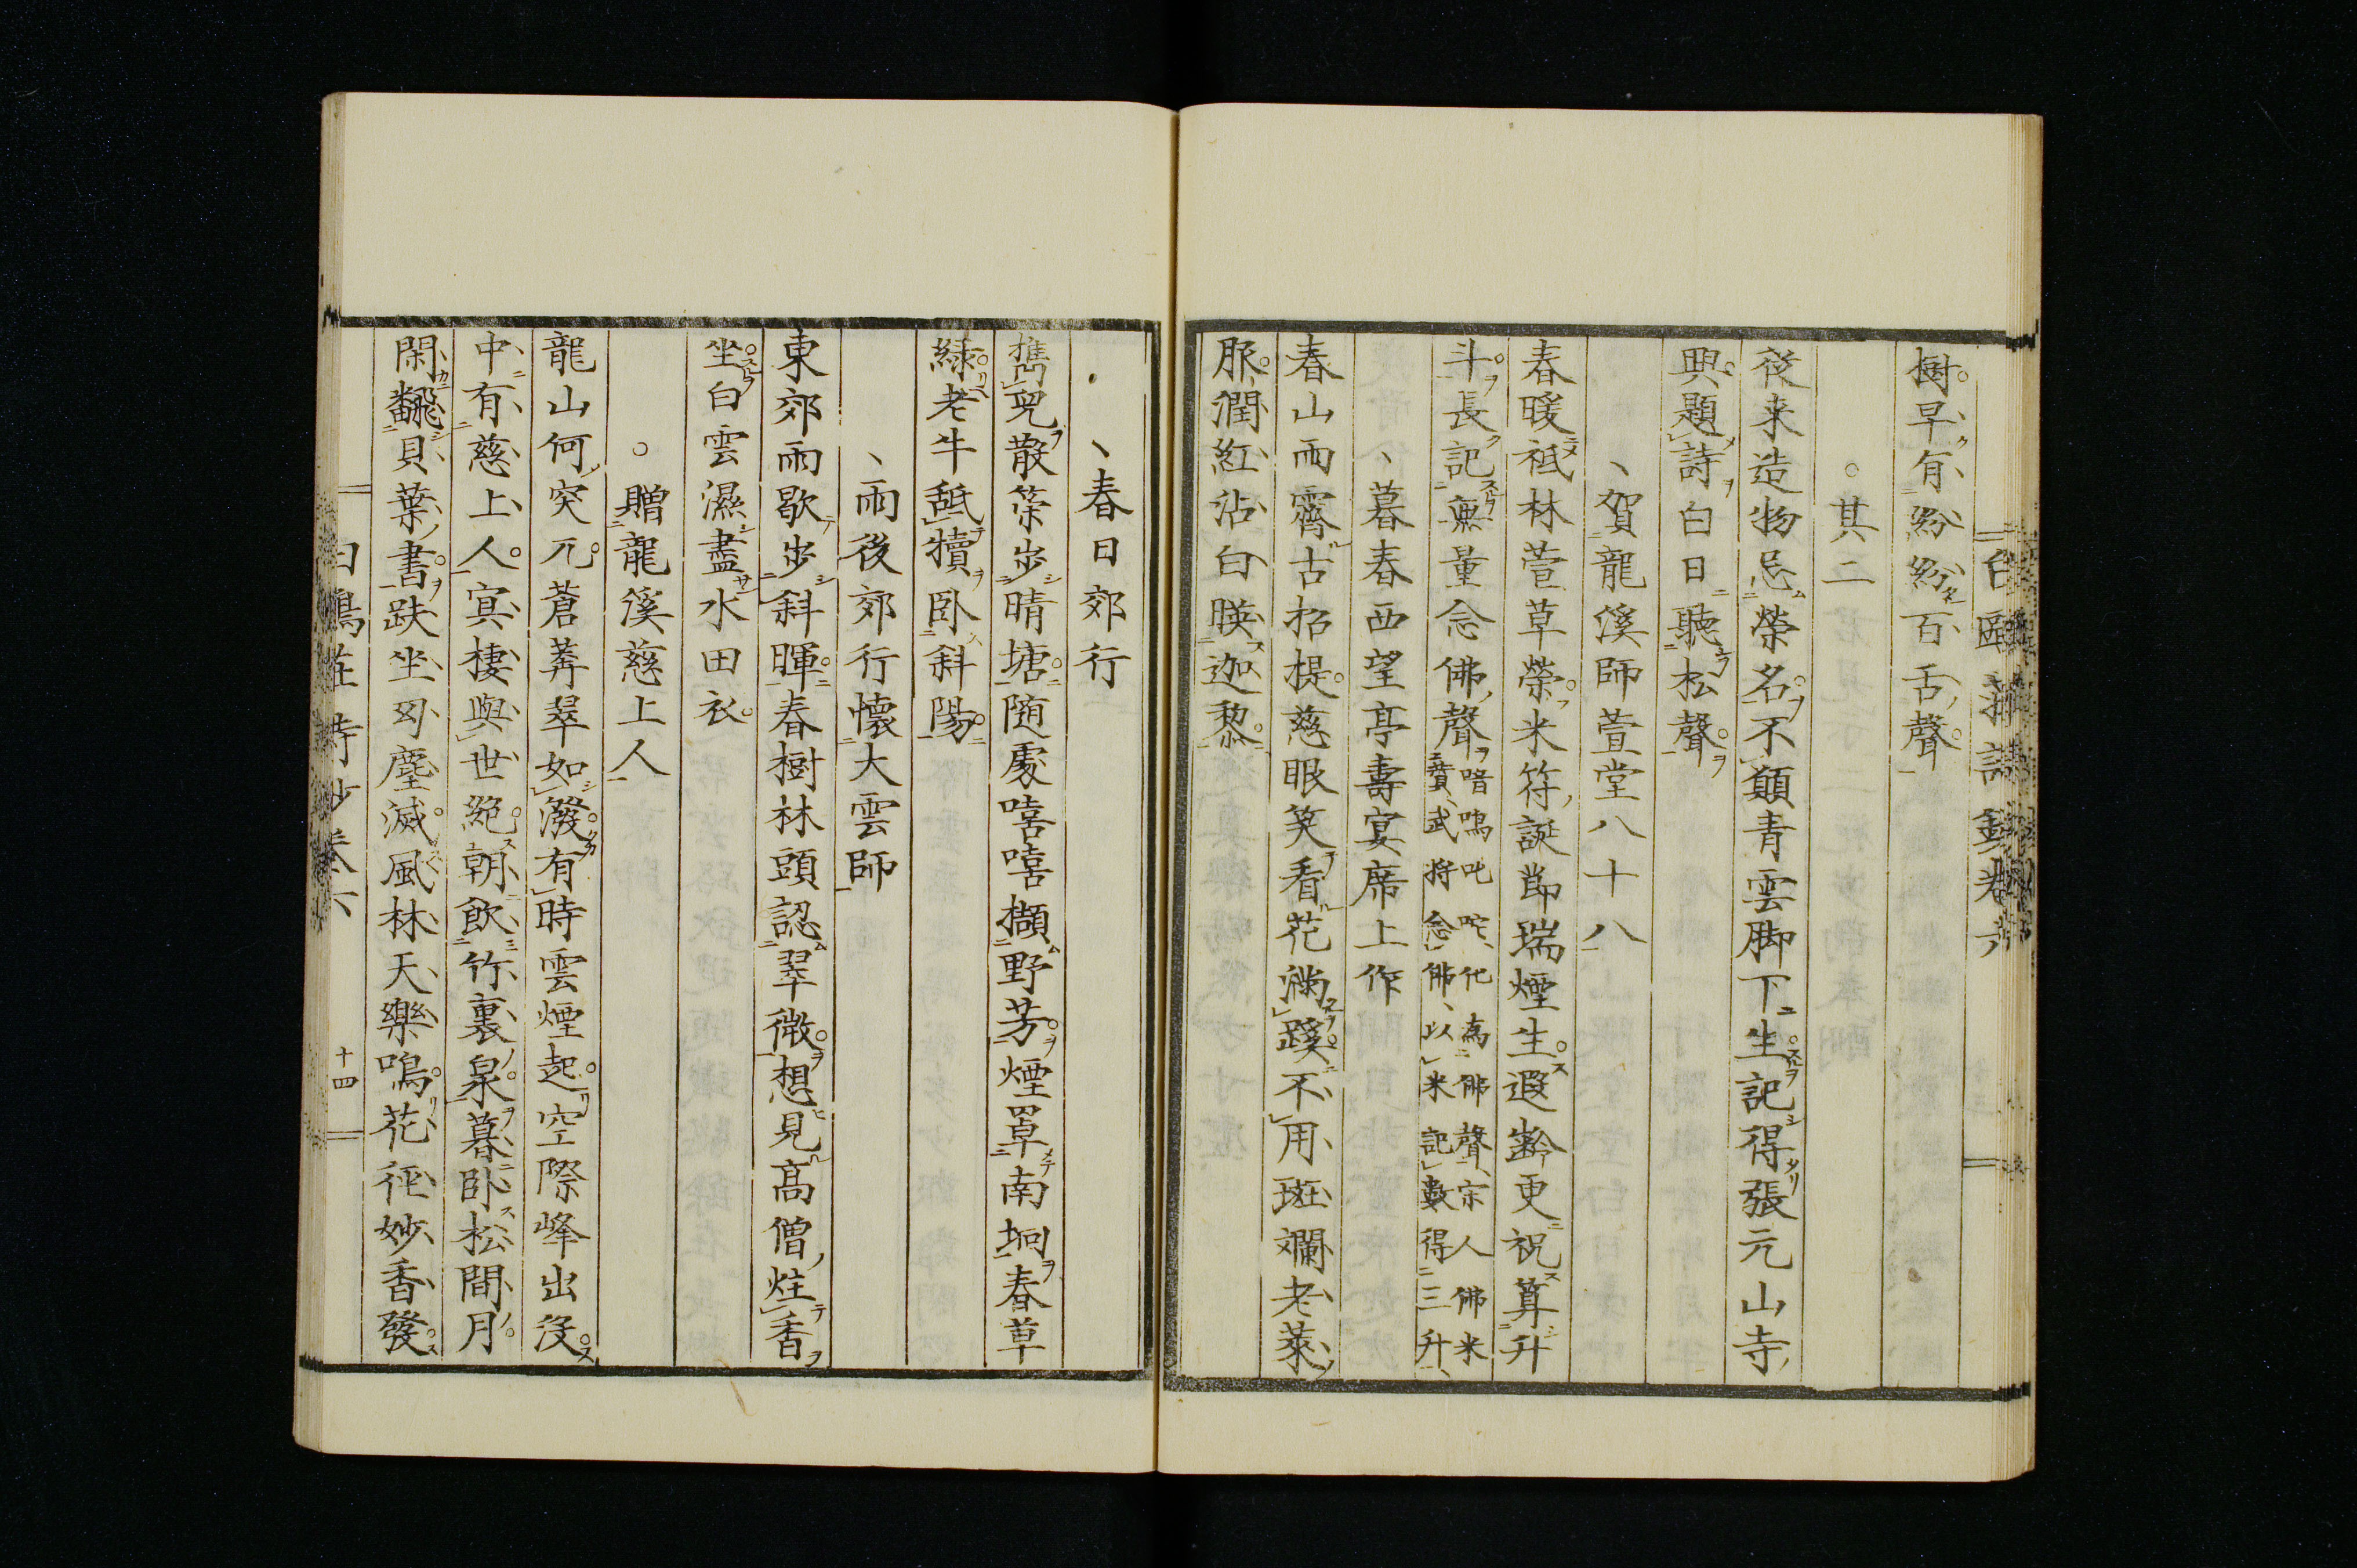 樹早有紛紛百舌聲
其二
従来造物忌榮名不願青雲脚下生記得張元山寺
興題詩白日聽松聲
賀龍溪師萱堂八十八
春暖祗林萱草榮米符誕節瑞煙生遐齢更祝算升
斗長記無量念佛聲
喑嗚叱咤化為佛聲宗人佛米
賛武将念佛以米記數得三升
暮春西望亭壽宴席上作
春山雨霽古招提慈眼笑看花滿蹊不用斑斕老萊
服潤紅沾白暎迦黎
春日郊行
携兒散策步晴塘随處嘻嘻擷野芳煙罩南坰春草
緑老牛舐犢卧斜陽
雨後郊行懷大雲師
東郊雨歇步斜暉春樹林頭認翠微想見高僧炷香
坐白雲濕盡水田衣
贈龍溪慈上人
龍山何突兀蒼莽翠如潑有時雲煙起空際峰出沒
中有慈上人冥棲與世絶朝飲竹裏泉暮卧松間月
閑飜貝葉書趺坐塵滅風林天樂鳴花徑妙香發
十四